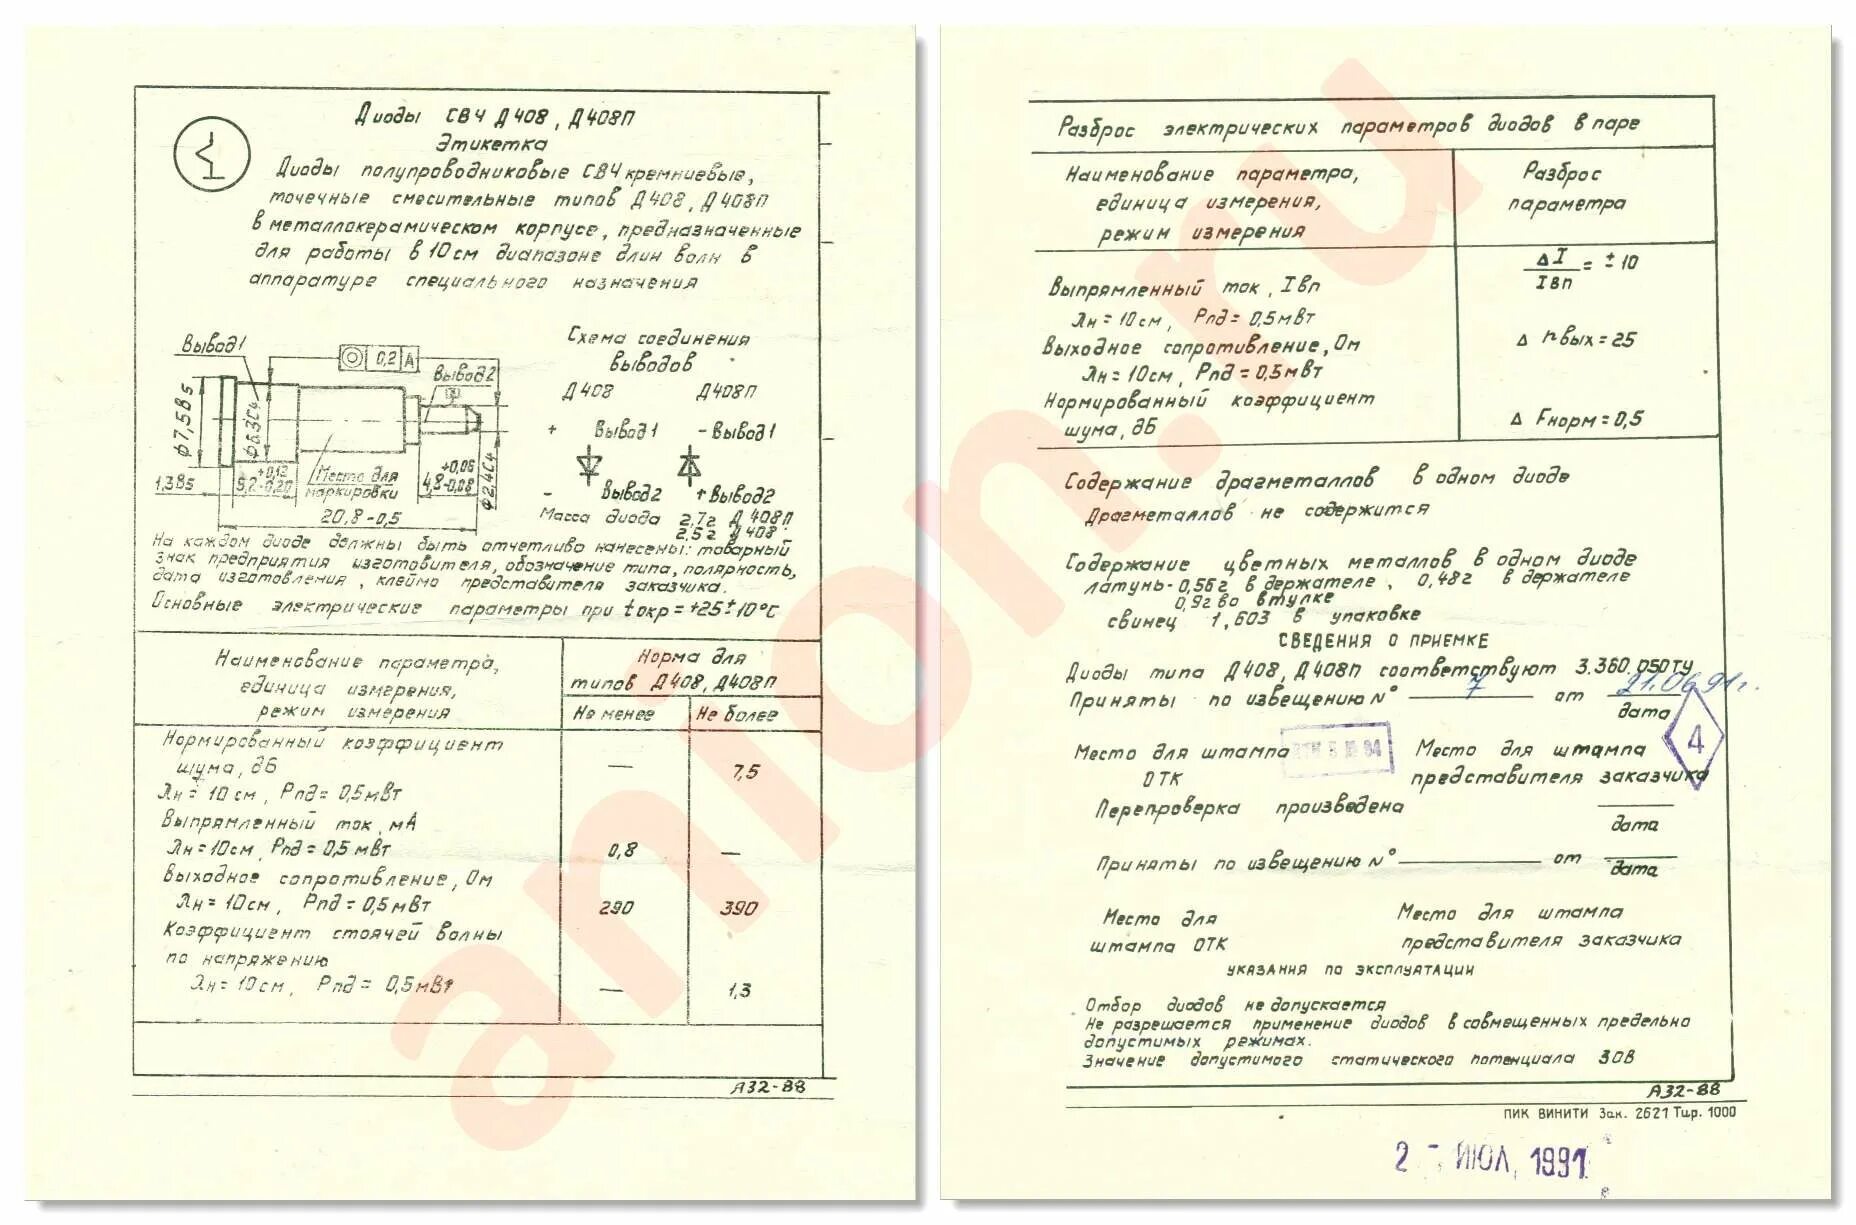 Диоды СВЧ Д408, Д408П
Этикетка
Диоды полупроводниковые СВЧ кремниевые,
точечные смесительные типов Д408, Д408П
в металлокерамическом корпусе, предназначенные
для работы в 10см диапазоне длин волн в
аппаратуре специального назначения
Вывод1
0,2 А
Вывод2
ф7,5В5
ф6,3С4
ф2,4С4
1,3В5
+0,12
5,2-0,20
Место для
маркировки
+0,06
4,8-0,08
20,8-0,5
Схема соединения
выводов
Д408 Д408П
+ Вывод1 - Вывод1
- Вывод2 + Вывод2
Масса диода 2,7г Д408П
2,5г Д408
На каждом диоде должны быть отчетливо нанесены: товарный
знак предприятия изготовителя, обозначение типа, полярность,
дата изготовления, клеймо представителя заказчика.
Основные электрические параметры при tокр=+25±10°С
Наименование параметра,
единица измерения,
режим измерения
Норма для
типов Д408, Д408П
Не менее Не более
Нормированный коэффициент
шума, дБ — 7,5
λн = 10см, Рпд = 0,5мВт
Выпрямленный ток, мА
λн = 10см, Рпд = 0,5мВт 0,8 —
Выходное сопротивление, Ом
λн = 10см, Рпд = 0,5мВт 290 390
Коэффициент стоячей волны
по напряжению
λн = 10см, Рпд = 0,5мВт — 1,3
А32-88
Разброс электрических параметров диодов в паре
Наименование параметра,
единица измерения,
режим измерения
Разброс
параметра
Выпрямленный ток, Iвп
λн = 10см, Рпд = 0,5мВт
ΔI
Iвп = ±10
Выходное сопротивление, Ом Δ rвых = 25
λн = 10см, Рпд = 0,5мВт
Нормированный коэффициент
шума, дБ Δ Fнорм = 0,5
Содержание драгметаллов в одном диоде
Драгметаллов не содержится
Содержание цветных металлов в одном диоде
латунь - 0,56г в держателе, 0,48г в держателе
0,9г во втулке
свинец 1,603 в упаковке
СВЕДЕНИЯ О ПРИЕМКЕ
Диоды типа Д408, Д408П соответствуют 3.360.050ТУ
Приняты по извещению № 7 от 21.06.91г.
дата
Место для штампа
ОТК
Место для штампа
представителя заказчика
4
Перепроверка произведена
дата
Приняты по извещению № от
дата
Место для
штампа ОТК
Место для штампа
представителя заказчика
УКАЗАНИЯ ПО ЭКСПЛУАТАЦИИ
Отбор диодов не допускается
Не разрешается применение диодов в совмещенных предельно
допустимых режимах.
Значение допустимого статического потенциала 30В
А32-88
ПИК ВИНИТИ Зак. 2621 Тир. 1000
2 - ИЮЛ, 1991
anion.ru